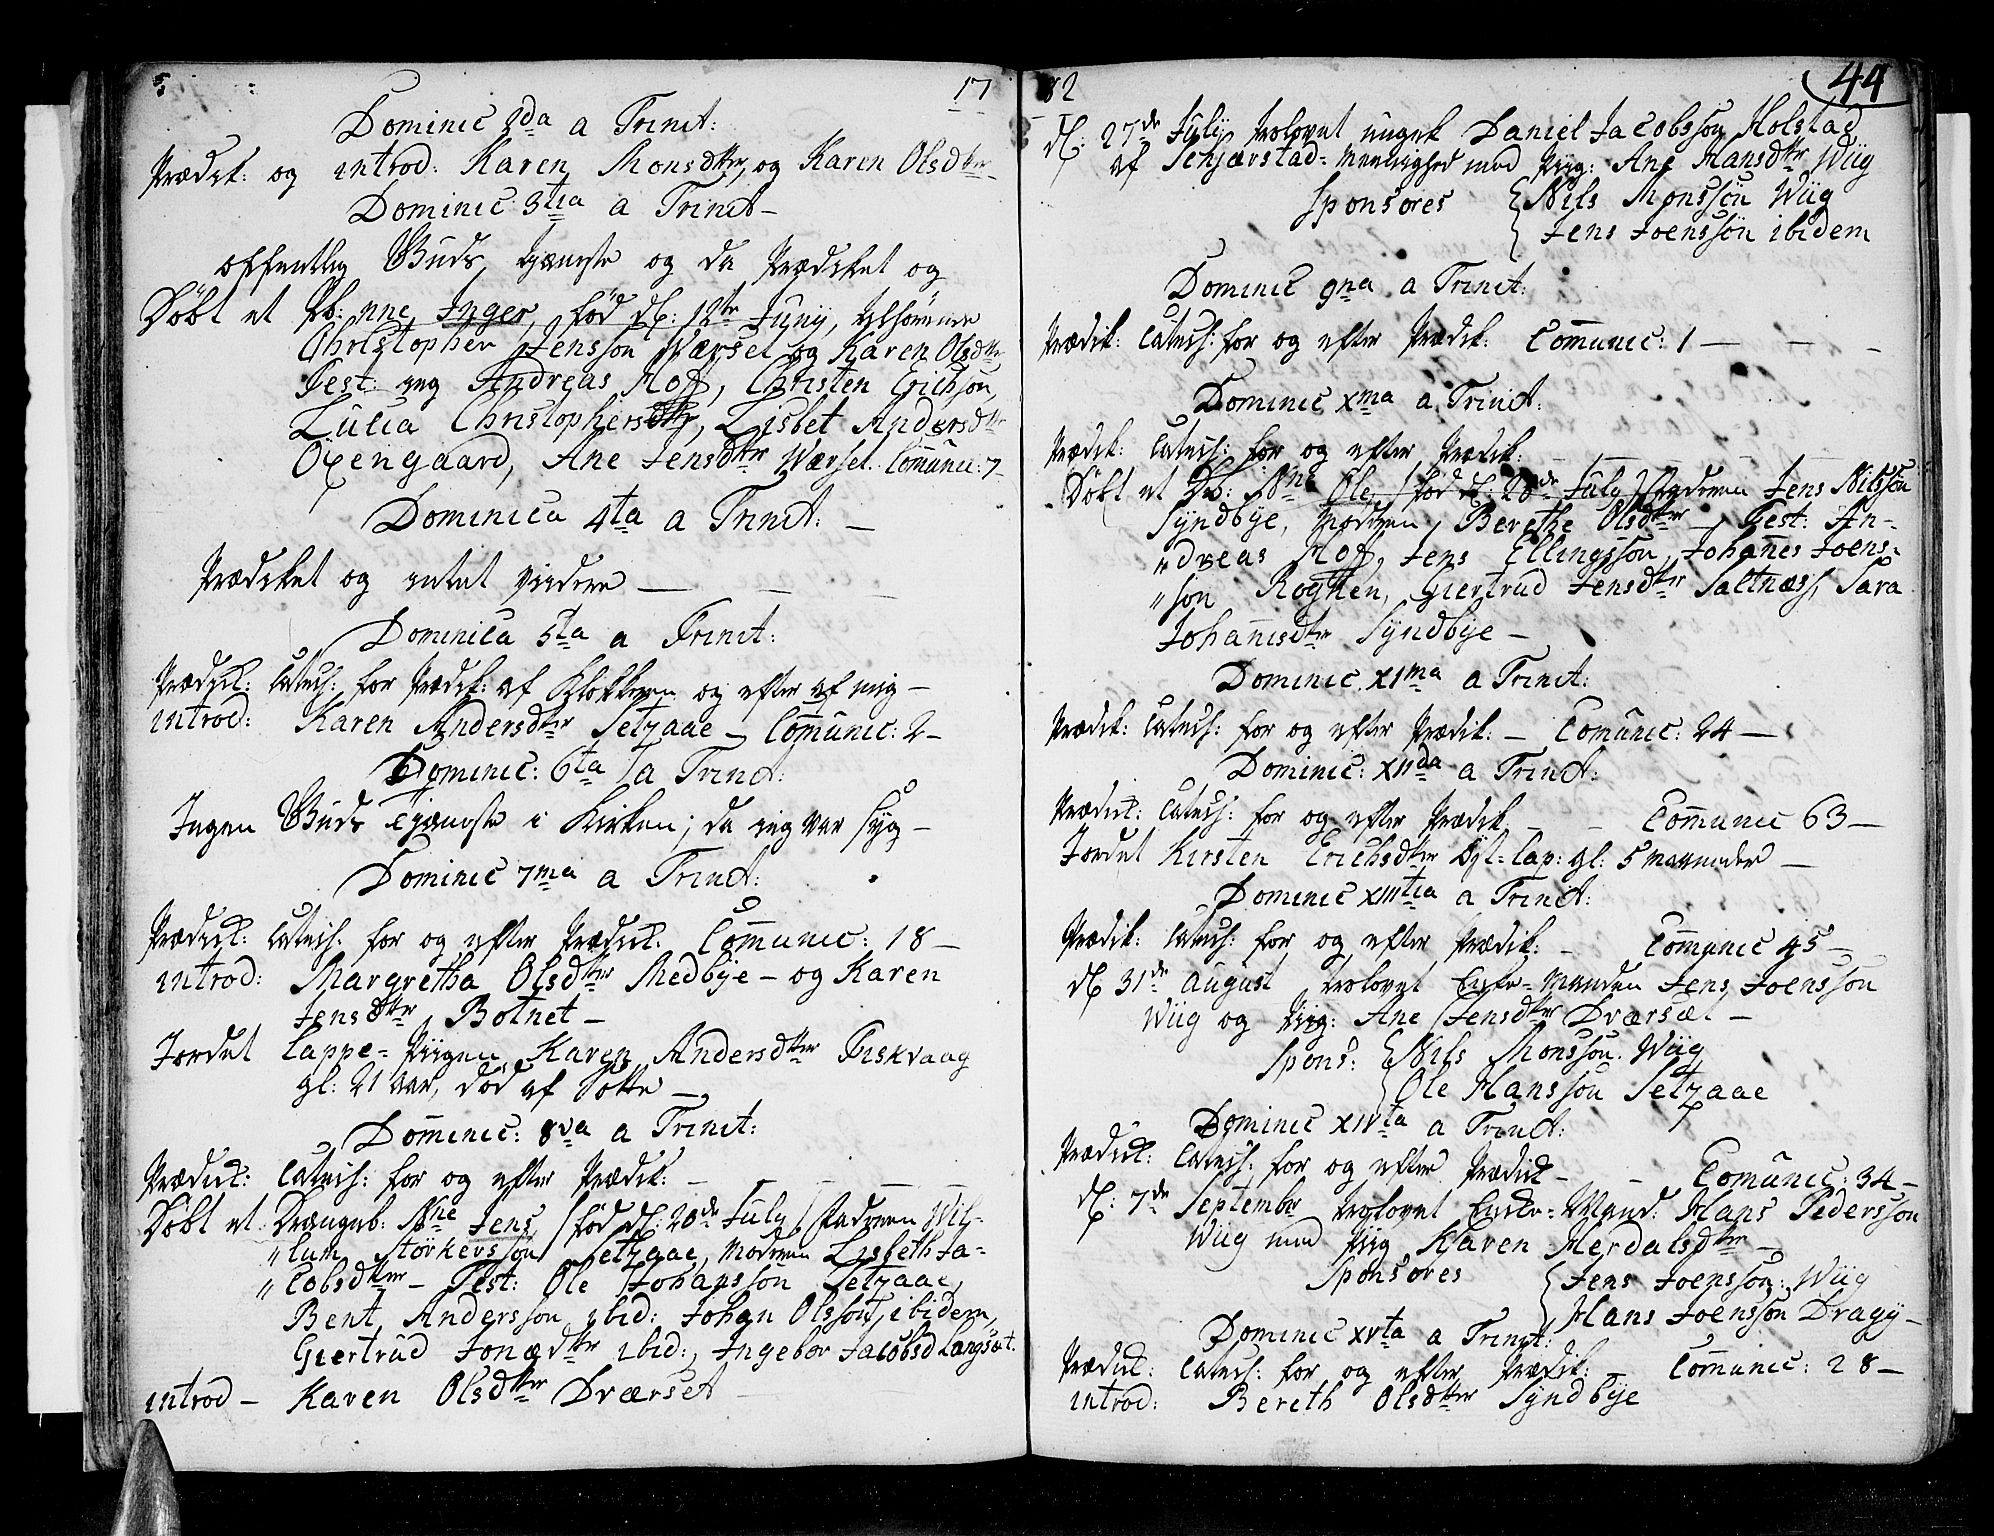 17
Dominic 2da a Trinit:
Prædik: og introd: Karen Monsdtr, og Karen Olsdtr
Dominic 3tia a Trinit –
offentlig Guds tjæneste og da Prædiket og
Døbt et Pb: nne Inger, fød d: 12te Juny,
Christopher Jensson Værset og Karen Olsdtr
Test: jeg Andreas Hof, Christen Erichson,
Lucia Christophersdtr, Lisbet Andersdtr
Oxengaard, Ane Jensdtr Værset. Comunic: 7 –
Dominica 4ta a Trinit: –
Prædiket og intet viidere –
Dominica 5ta a Trinit:
Prædick: Catech: for Prædik: af Klokkeren og efter af mig –
introd: Karen Andersdtr Setzaae – Comunic: 2 –
Dominic: 6ta a Trinit:
Ingen Guds tjæneste i Kirken; da jeg var syg –
Dominic 7ma a Trinit:
Prædick: Catech: for og efter Prædick: Comunic: 18 –
introd: Margretha Olsdtr Medbye – og Karen
Jensdtr Botnet –
Jordet Lappe-Piigen Karen Andersdtr Fiskvaag
gl: 21 aar, død af Sotte –
Dominic: 8va a Trinit:
Prædick: Catech: for og efter Prædik: –
Døbt et Drængeb: Nne Jens / fød d: 20de July / Faderen Wil-
"lum Størkersson Setzaae, Moderen Lisbeth Ja-
"cobsdtr – Test: Ole Johansson Setzaae,
Bent Andersson ibid: Johan Olsson ibidem,
Giertrud Jonædtr ibid:, Ingebor Jacobsd Langsæt.
introd – Karen Olsdtr Dværset –
82
44
d: 27de July trolovet ungek Daniel Jacobsson Holstad
af Schjærstad-Meenighed med Piig: Ane Hansdtr Wiig
Sponsores { Nils Monssøn Wiig
Jens Joenssøn ibidem
Dominic 9na a Trinit:
Prædik: Catech: for og efter Prædik: Comunic: 1 –
Dominic xma a Trinit:
Prædik: Catech: for og efter Prædik: –
Døbt et Db: Nne Ole / fød d: 28de July / Faderen Jens Nilsson
Syndbye, Moderen Berethe Olsdtr – Test: An-
"dreas Hof, Jens Ellingsson, Johanes Joens-
"søn Rognen, Giertrud Jensdtr Saltnæss, Sara
Johanisdtr Syndbye –
Dominic. XIma a Trinit:
Prædik: Catech: for og efter Prædik: – Comunic: 24 –
Dominic: XIIda a Trinit:
Prædick: Catech: for og efter Prædik – Comunic 63 –
Jordet Kirsten Erichsdtr Lap: gl: 5 maaneder –
Dominic XIIItia a Trinit:
Prædik: Catech: for og efter Prædik: – Comunic 45 –
d 31de August trolovet Enke-Manden Jens Joensson
Wiig og Piig: Ane Jensdtr Dværsæt –
Spons: { Nils Monsson Wiig
Ole Hansson Setzaae
Dominic XIVta a Trinit:
Prædick: Catech: for og efter Prædick – Comunic: 34 –
d: 7de Septembr trolovet Enke-Mand: Hans Pedersson
Wiig med Piig Karen Merdalsdtr –
Sponsores { Jens Joensson: Wiig
Hans Joensson Dragy –
Dominic XVta a Trinit:
Prædick: Catech: for og efter Prædik: Comunic: 28 –
introd: Bereth Olsdtr Syndbye